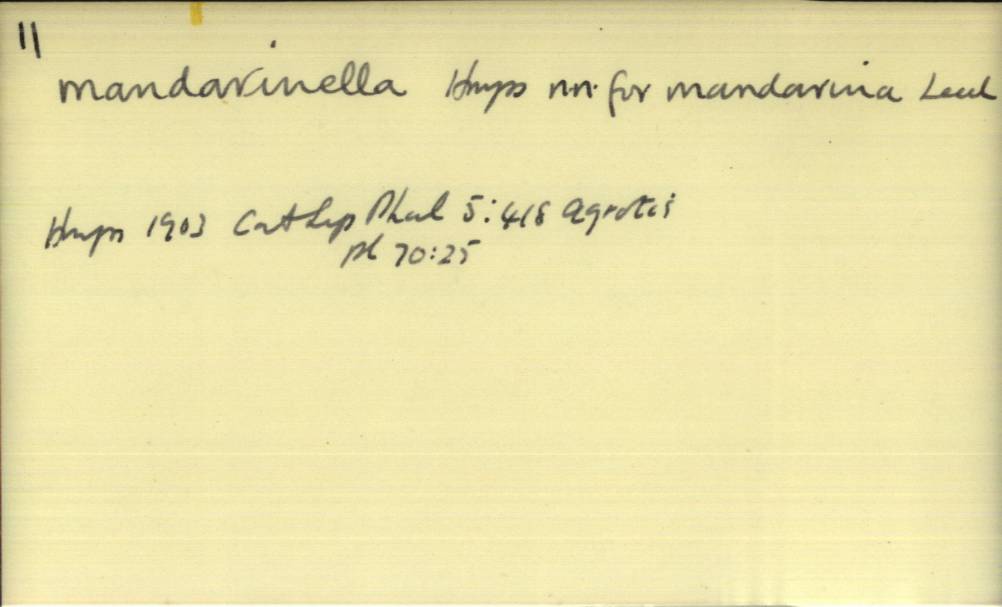 11
mandarinella Hmps nn. for mandarina Leech
Hmpn 1903 Cat Lep Phal 5:418 Agrotis
pl 70:25